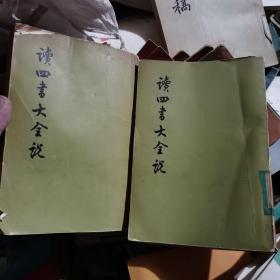 讀四書大全説
讀四書大全説
稿